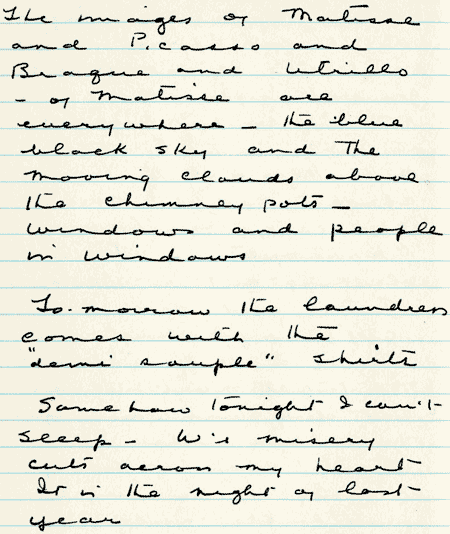 The images of Matisse
and Picasso and
Braque and Utrillo
- of Matisse are
everywhere - the blue
black sky and the
moving clouds above
the chimney pots -
windows and people
in windows
To-morrow the laundress
comes with the
"demi souple" shirts
Somehow tonight I can't
sleep - W's misery
cuts across my heart
It is the night of last
year